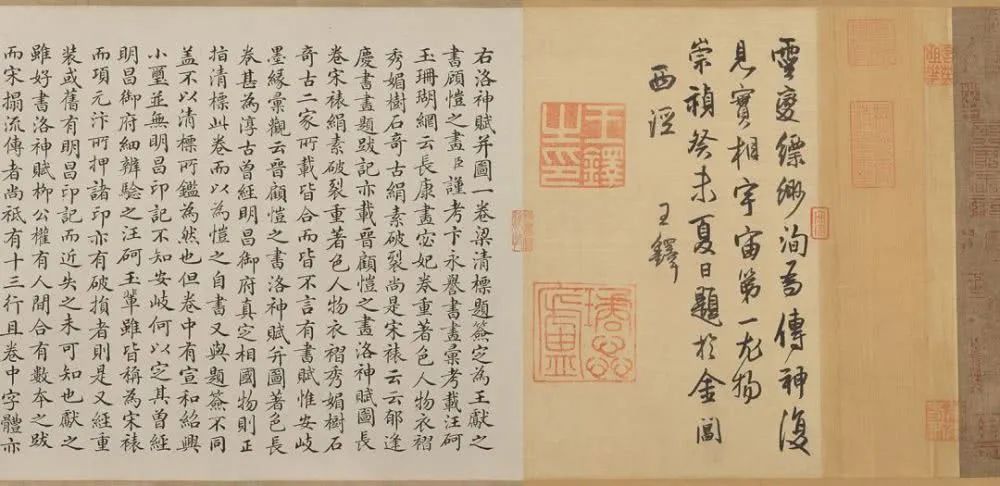 靈變縹緲洵為傳神復
見實相宇宙第一尤物
崇禎癸未夏日題於金閶
西涇
王鐸
王鐸之印
右洛神賦并圖一卷梁清標題簽定為王獻之
書顧愷之畫臣謹考卞永譽書畫彙考載汪砢
玉珊瑚網云長康畫宓妃卷重著色人物衣褶
秀媚樹石奇古絹素破裂尚是宋裱云云郁逢
慶書畫題跋記亦載晉顧愷之畫洛神賦圖長
卷宋裱絹素破裂重著色人物衣褶秀媚樹石
奇古二家所載皆合而皆不言有書賦惟安岐
墨緣彙觀云晉顧愷之書洛神賦并圖著色長
卷甚為淳古曾經明昌御府真定相國物則正
指清標此卷而以為愷之自書又與題簽不同
蓋不以清標所鑑為然也但卷中有宣和紹興
小璽並無明昌印記不知安岐何以定其曾經
明昌御府細辨驗之汪砢玉輩雖皆稱為宋裱
而項元汴所押諸印亦有破損者則是又經重
裝或舊有明昌印記而近失之未可知也獻之
雖好書洛神賦柳公權有人間合有數本之跋
而宋搨流傳者尚祗有十三行且卷中字體亦